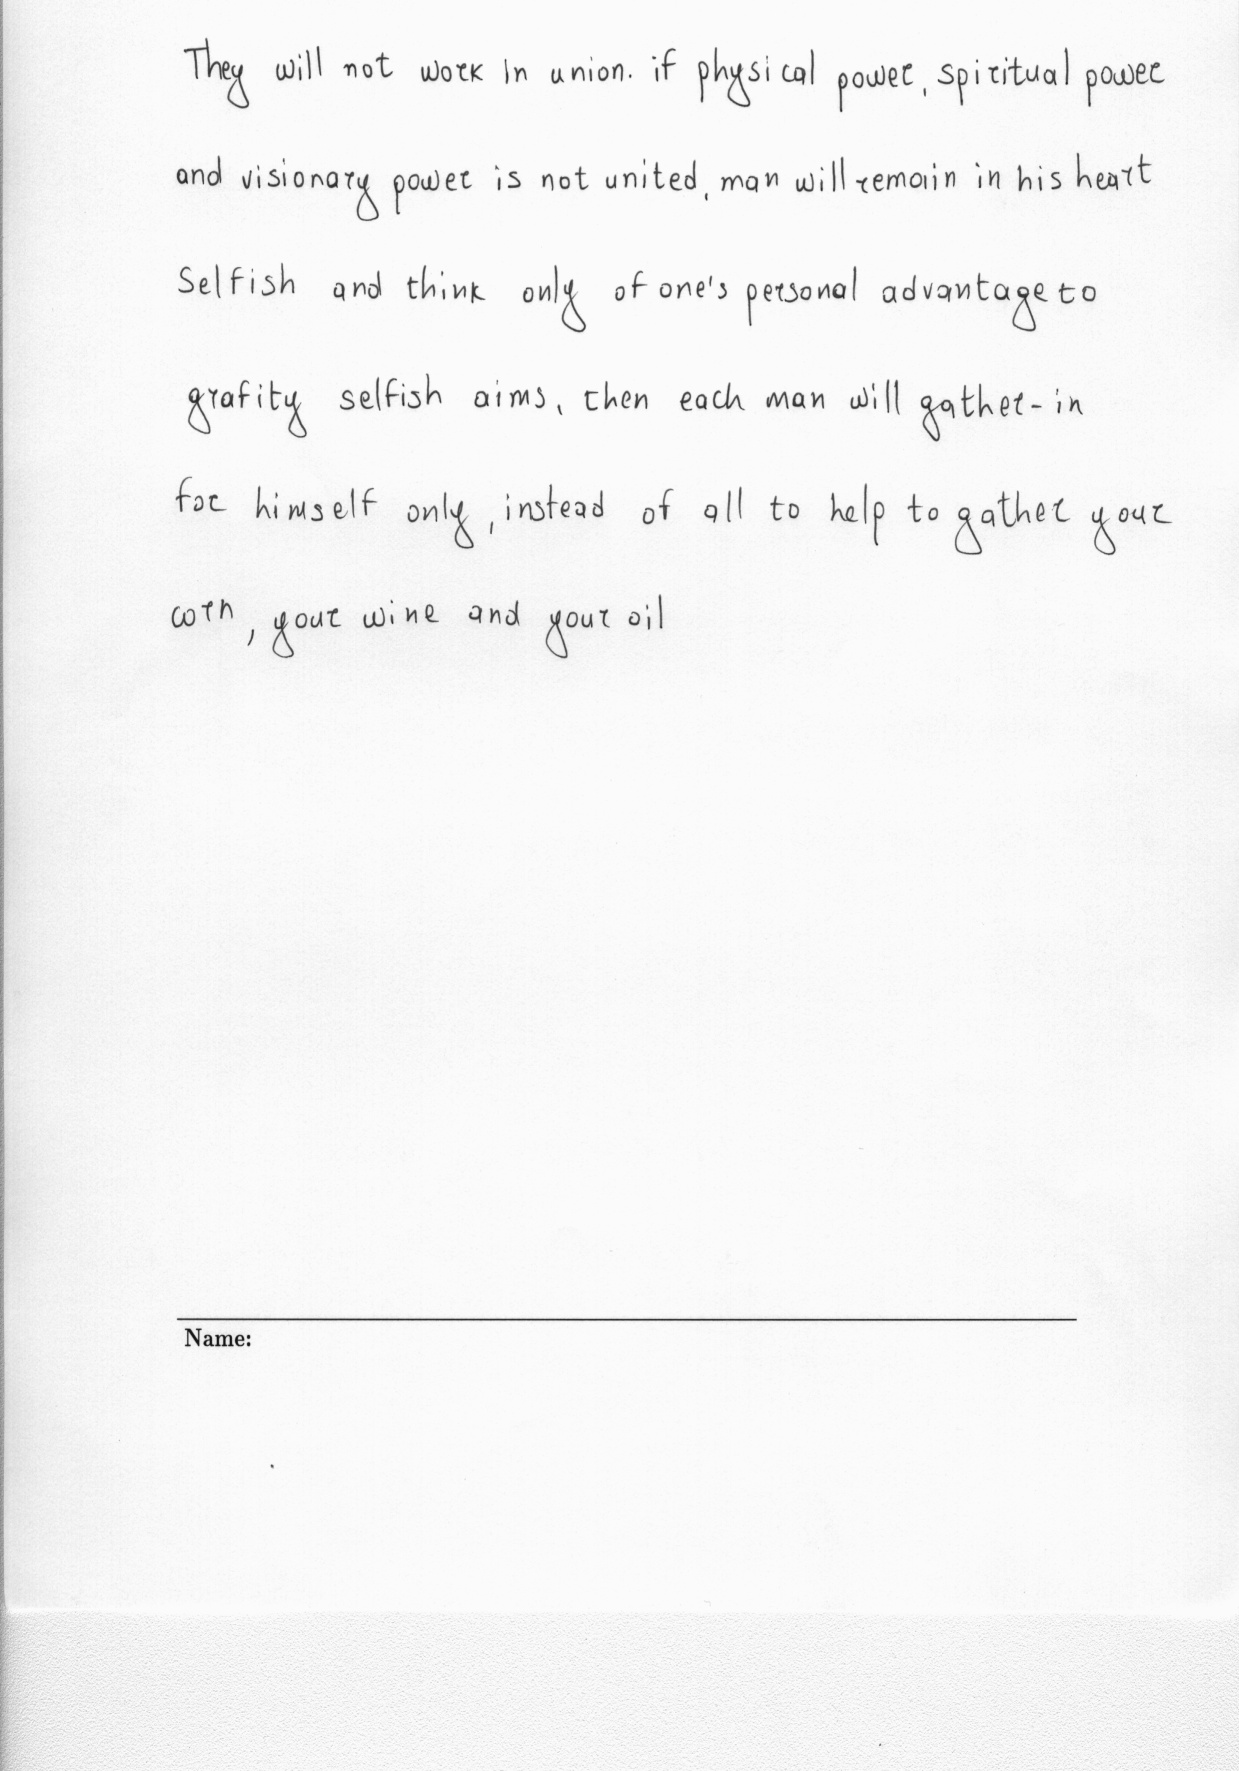 They will not work in union. if physical power, spiritual power
and visionary power is not united, man will remain in his heart
Selfish and think only of one's personal advantage to
grafity selfish aims, then each man will gather-in
for himself only, instead of all to help to gather your
corn, your wine and your oil
Name: